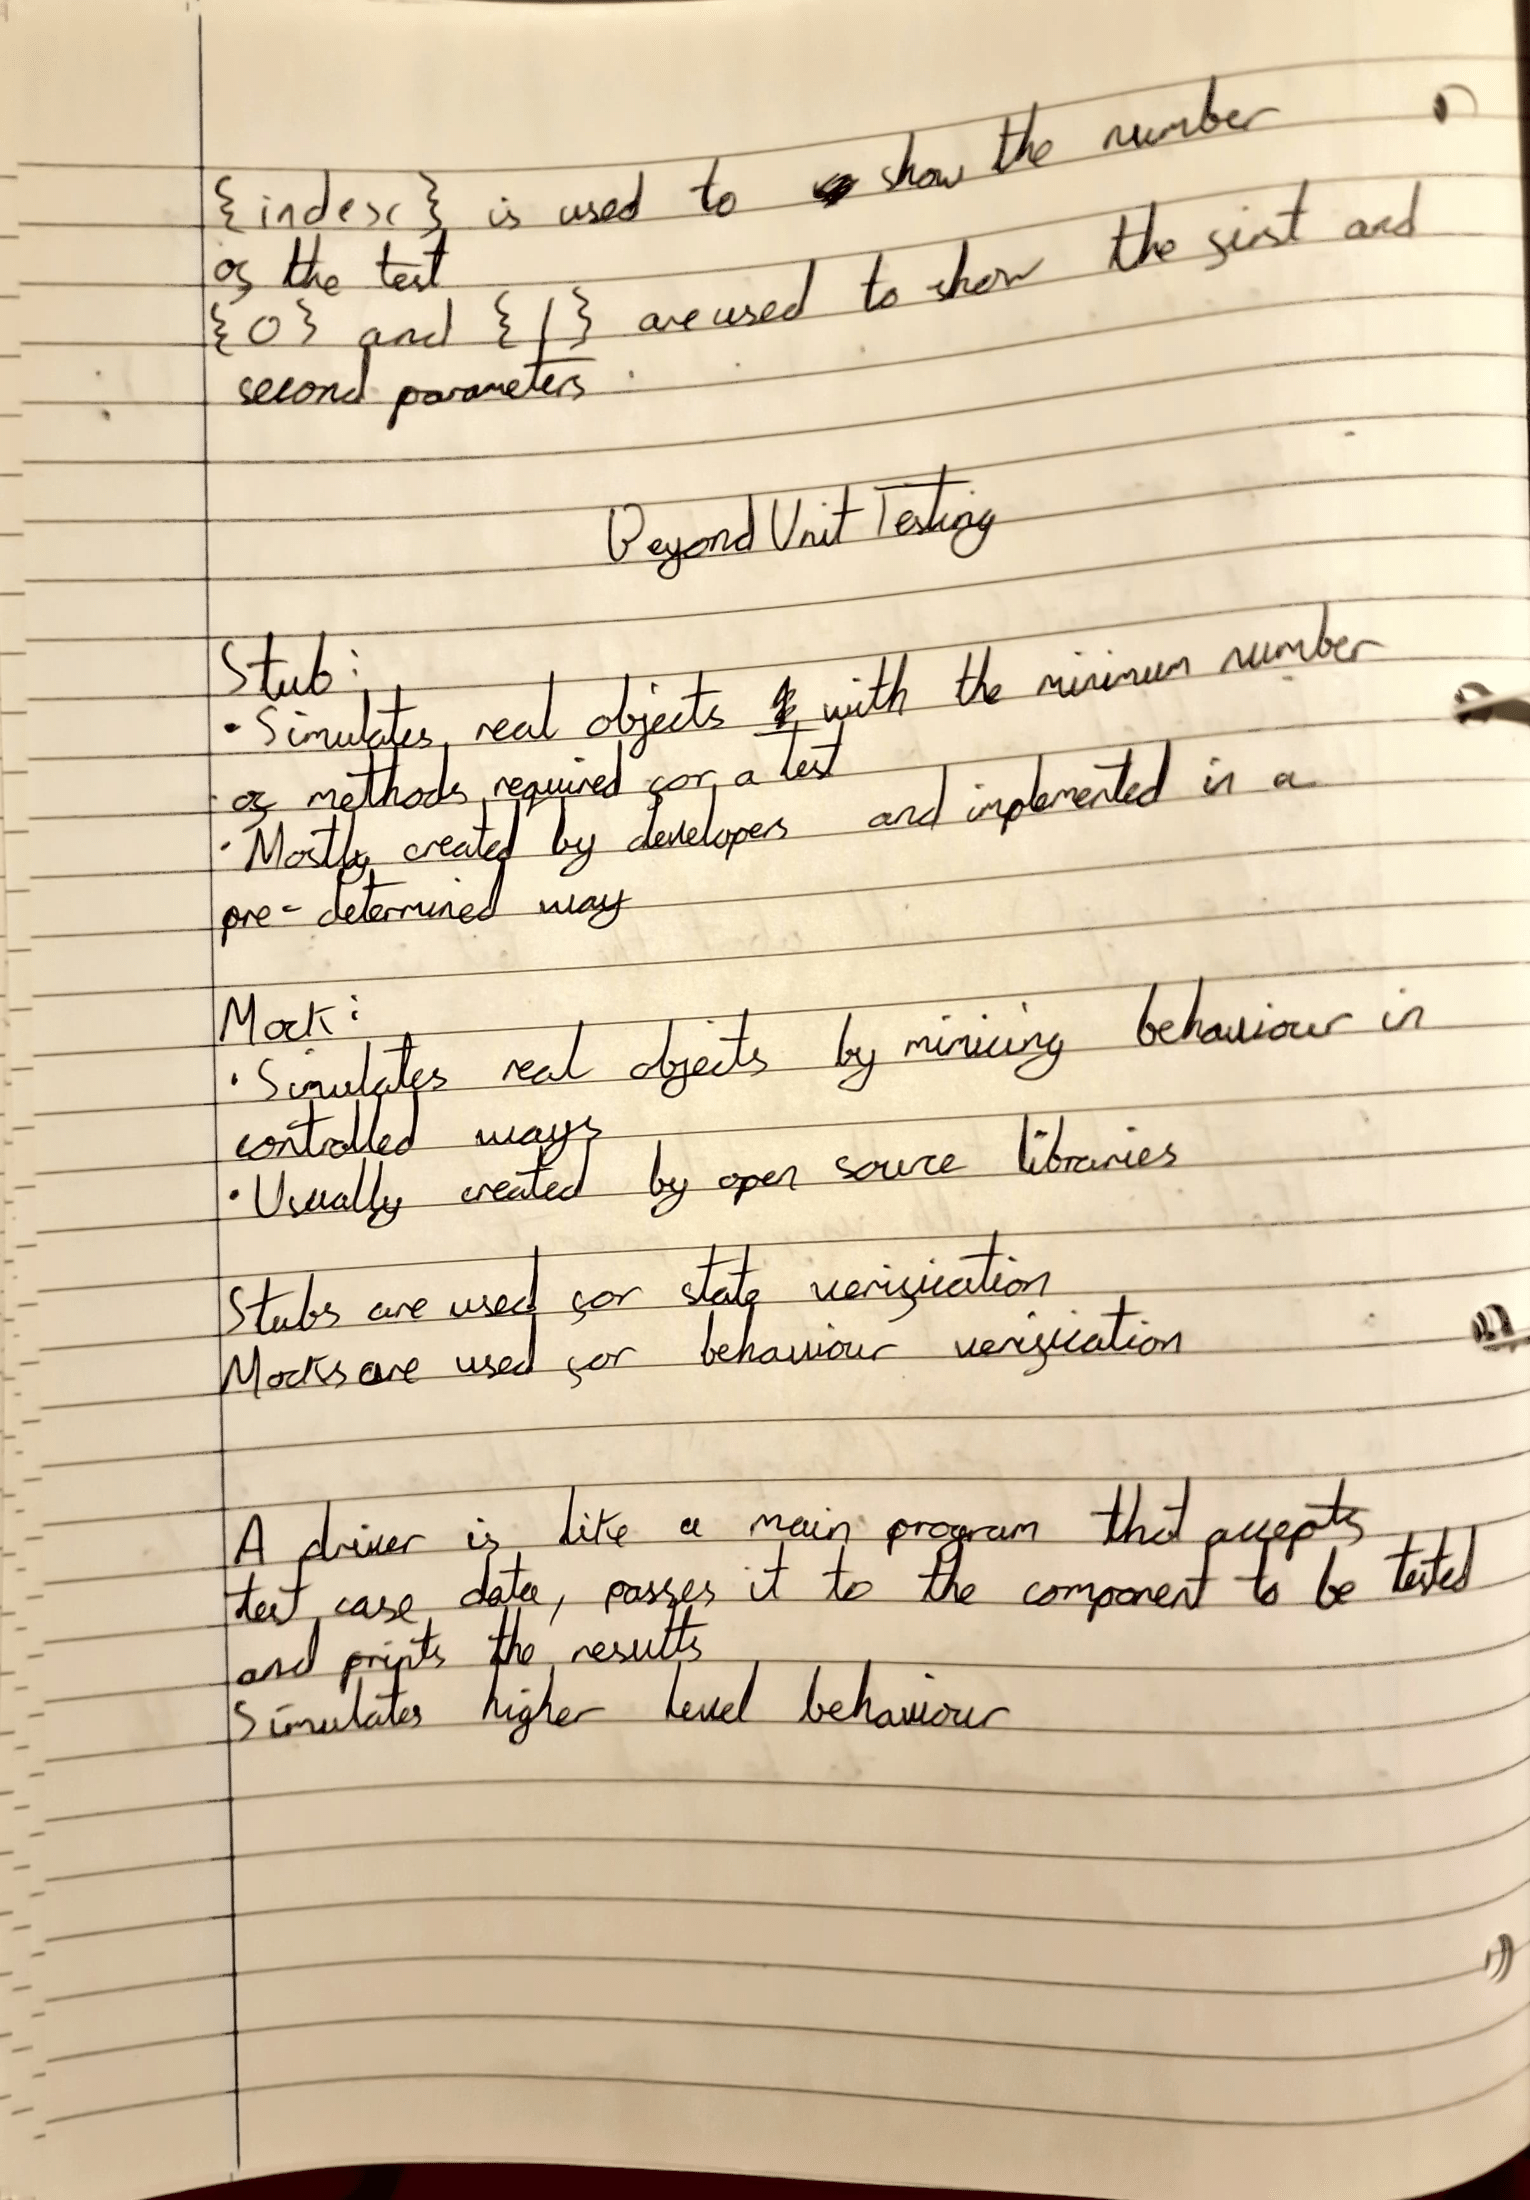 {index} is used to show the number
of the test
{0} and {1} are used to show the first and
second parameters
Beyond Unit Testing
Stub:
• Simulates real objects with the minimum number
of methods required for a test
• Mostly created by developers and implemented in a
pre-determined way
Mock:
• Simulates real objects by mimicing behaviour in
controlled ways
• Usually created by open source libraries
Stubs are used for state verification
Mocks are used for behaviour verification
A driver is like a main program that accepts
test case data, passes it to the component to be tested
and prints the results
Simulates higher level behaviour